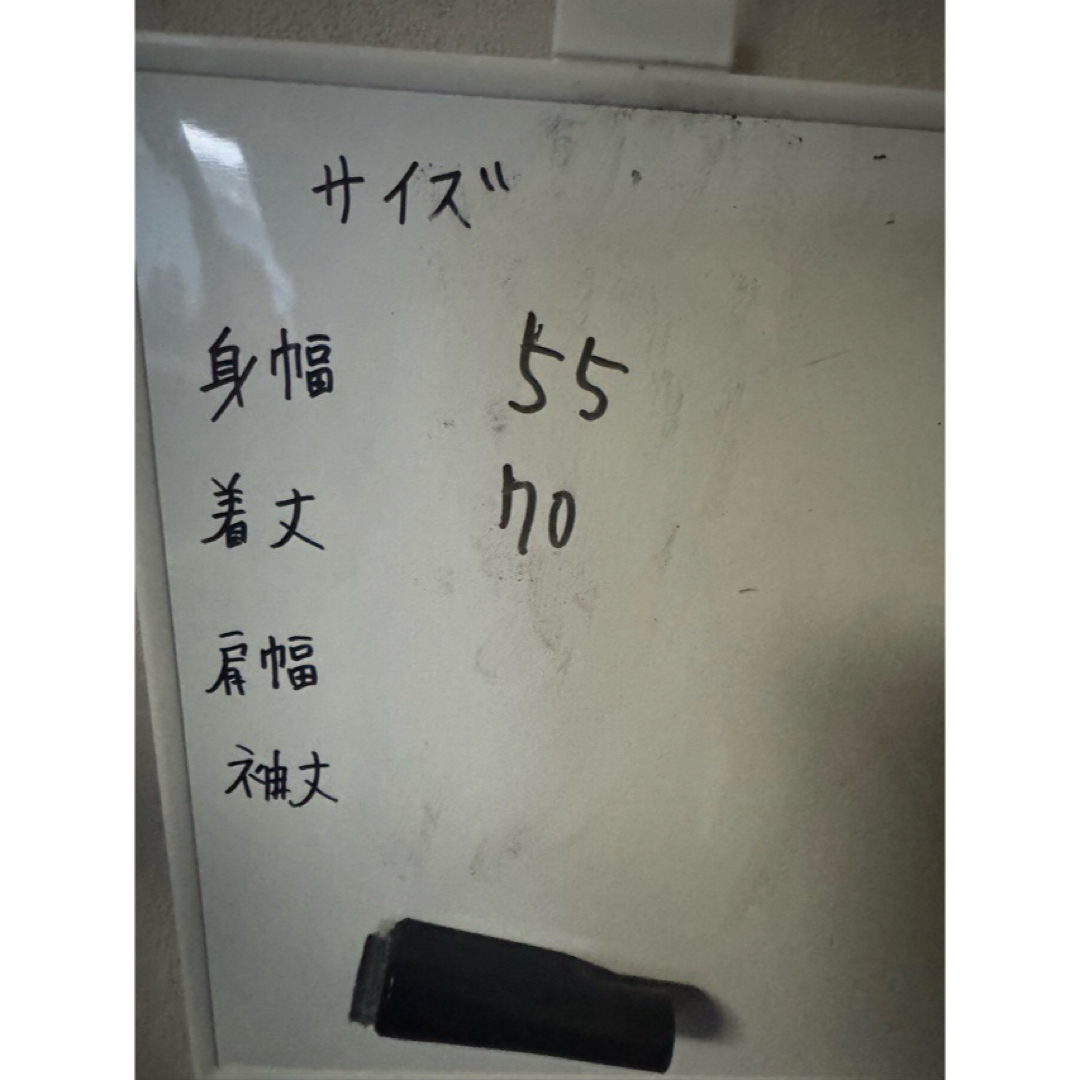 サイズ
身幅 55
着丈 70
肩幅
袖丈